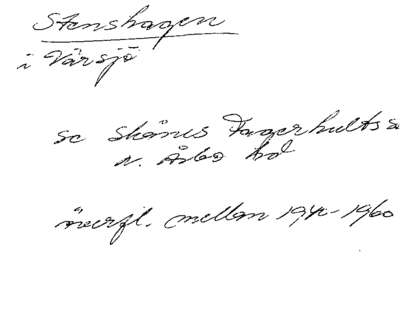 Stenshagen
i Vårsjö
se Skånes Fagerhults s
N. Åsbo hd
överfl. mellan 1940-1960